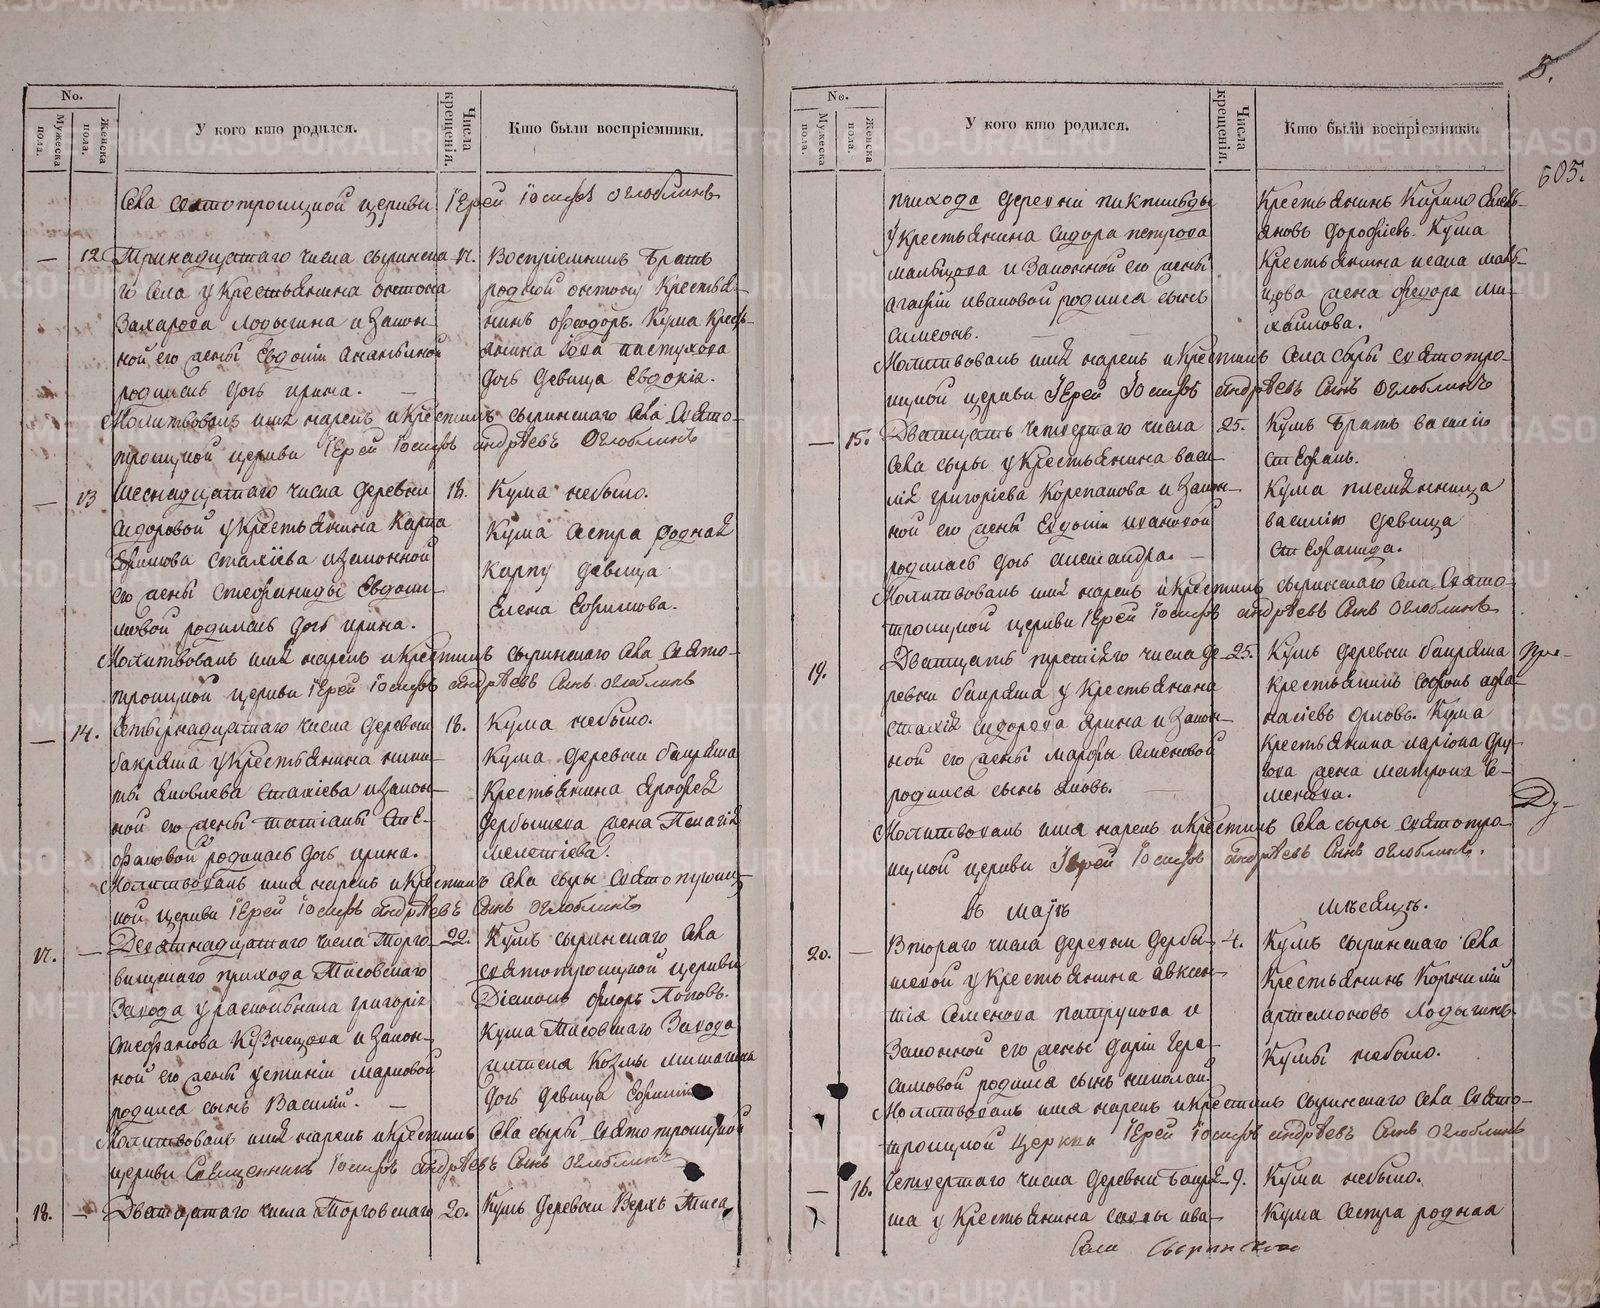 No.
Мужеска пола.
Женска пола.
У кого кто родился.
Числа крещенія.
Кто были воспріемники.
Села святотроицкой церкви Іерей Іосифъ Оглоблинъ
12 Тринадцатаго числа сыринска-
го села у крестьянина антона
Захарова Лодыгина и закон-
ной его жены Евдокіи Ананьиной
родилась дочь ирина.
17. Воспріемникъ братъ
родной антону крестья-
нинъ Феодоръ. Кума крест-
янина Іова пастухова
дочь девица Евдокіа.
Молитвовалъ имя нарекъ и крестилъ сыринскаго села Свято-
троицкой церкви Іерей Іосифъ андрѣевъ Оглоблинъ
13 Шеснадцатаго числа деревни
Сидоровой у крестьянина Карпа
Ефимова Стахіева и законной
его жены Стефаниды Евдоки-
мовой родилась дочь ирина.
18. Кума небыло.
Кума сестра родная
Карпу девица
Елена Ефимова.
Молитвовалъ имя нарекъ и крестилъ сыринскаго села Свято-
троицкой церкви Іерей Іосифъ андрѣевъ Сынъ Оглоблинъ
14. Четырнадцатаго числа деревни
баиряша у крестьянина ники-
ты Яковлева Стахіева и закон-
ной его жены татіаны Сте-
фановой родилась дочь ирина.
18. Кума небыло.
Кума деревни баиряша
Крестіянина Ярофея
дербышева жена Пелагія
мелентіева.
Молитвовалъ имя нарекъ и крестилъ села сыры Святотроиц-
кой церкви Іерей Іосифъ андрѣевъ Сынъ Оглоблинъ
17. Девятнадцатаго числа Торго-
вищскаго прихода Тисовскаго
Завода у расколника григорія
Стефанова Кузнецова и закон-
ной его жены устиніи марковой
родился сынъ Василій.
22. Кумъ сыринскаго села
святотроицкой церкви
Діаконъ флоръ Поповъ.
Кума Тисовскаго Завода
жителя Козмы
дочь девица Ефимія
Молитвовалъ имя нарекъ и крестилъ села сыры Святотроицкой
церкви Священникъ Іосифъ андрѣевъ Сынъ Оглоблинъ
18. Дватцатаго числа Торговскаго
20. Кумъ деревни Верхъ Тиса
5.
605.
No.
Мужеска пола.
Женска пола.
У кого кто родился.
Числа крещенія.
Кто были воспріемники.
прихода деревни
у крестьянина сидора петрова
мальцова и законной его жены
агафіи ивановой родился сынъ
Симеонъ.
Крестьянинъ Кирило
яновъ дорофіевъ. Кума
Крестьянина исака маль-
цова жена федора ми-
хаилова.
Молитвовалъ имя нарекъ и крестилъ села сыры святотро-
ицкой церкви Іерей Іосифъ андрѣевъ Сынъ Оглоблинъ
15. Дватцать четвертаго числа
села сыры у крестьянина васи-
лія григоріева Корепанова и закон-
ной его жены Евдокіи ивановой
родилась дочь александра.
25. Кумъ братъ василію
Стефанъ.
Кума племянница
василію девица
Стефанида.
Молитвовалъ имя нарекъ и крестилъ сыринскаго села Свято-
троицкой церкви Іерей Іосифъ андрѣевъ Сынъ Оглоблинъ
19. Дватцать третіяго числа де-
ревни баиряша у крестьянина
стахія сидорова ярина и закон-
ной его жены марфы Семеновой
родился сынъ яковъ.
25. Кумъ деревни баиряша
крестьянинъ софонъ афа-
насіевъ Орловъ. Кума
крестьянина ларіона дру-
гова жена матрона Се-
менова.
Молитвовалъ имя нарекъ и крестилъ села сыры святотро-
ицкой церкви Іерей Іосифъ андрѣевъ Сынъ Оглоблинъ.
въ маѣ мѣсяцѣ.
20. Втораго числа деревни дербы-
шевой у крестьянина авксен-
тія Семенова патрукова и
Законной его жены даріи Гера-
симовой родился сынъ николай.
4. Кумъ сыринскаго села
Крестьянинъ Корнилій
артемоновъ Лодыгинъ.
Кумы небыло.
Молитвовалъ имя нарекъ и крестилъ сыринскаго села Свято-
троицкой Церкви Іерей Іосифъ андрѣевъ Сынъ Оглоблинъ
16. Четвертаго числа деревни Баиря-
ша у крестьянина саввы ива-
9. Кума небыло.
Кума сестра родная
Села Сыринскаго
METRIKI.GASO-URAL.RU